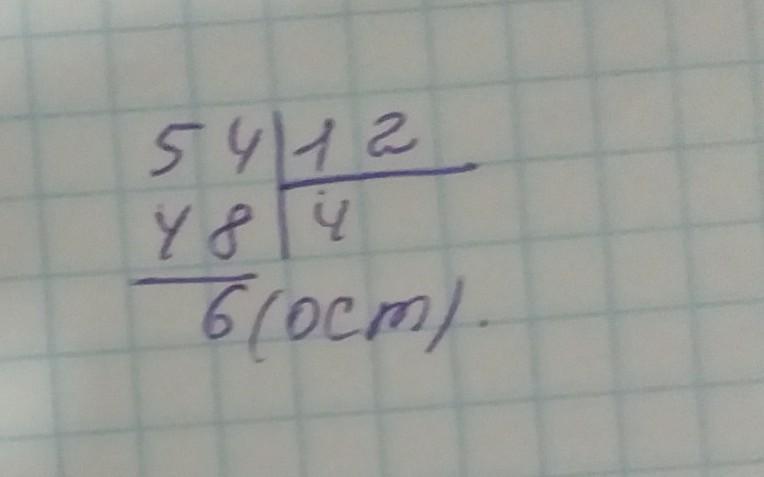 54|12
48|4
6(ост).